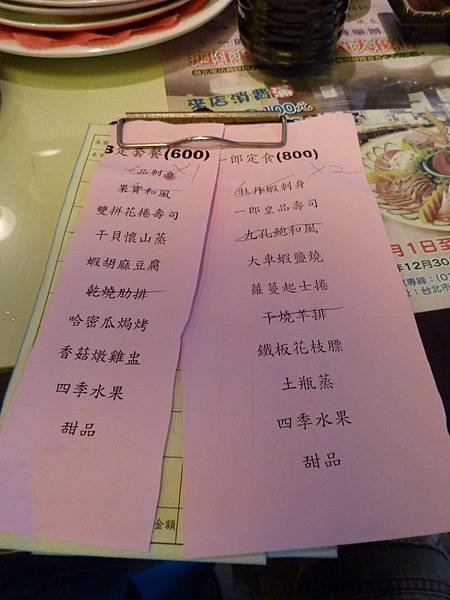 B定套餐(600)
品刺身
果實和風
雙拼花捲壽司
干貝懷山蒸
蝦胡麻豆腐
乾燒肋排
哈密瓜焗烤
香菇燉雞盅
四季水果
甜品
一郎定食(800)
牡丹蝦刺身
x2
一郎皇品壽司
九孔鮑和風
大車蝦鹽燒
蘿蔓起士捲
干燒羊排
鐵板花枝膘
土瓶蒸
四季水果
甜品
金額
來店消費滿
100元
月1日至
年12月30
台北市